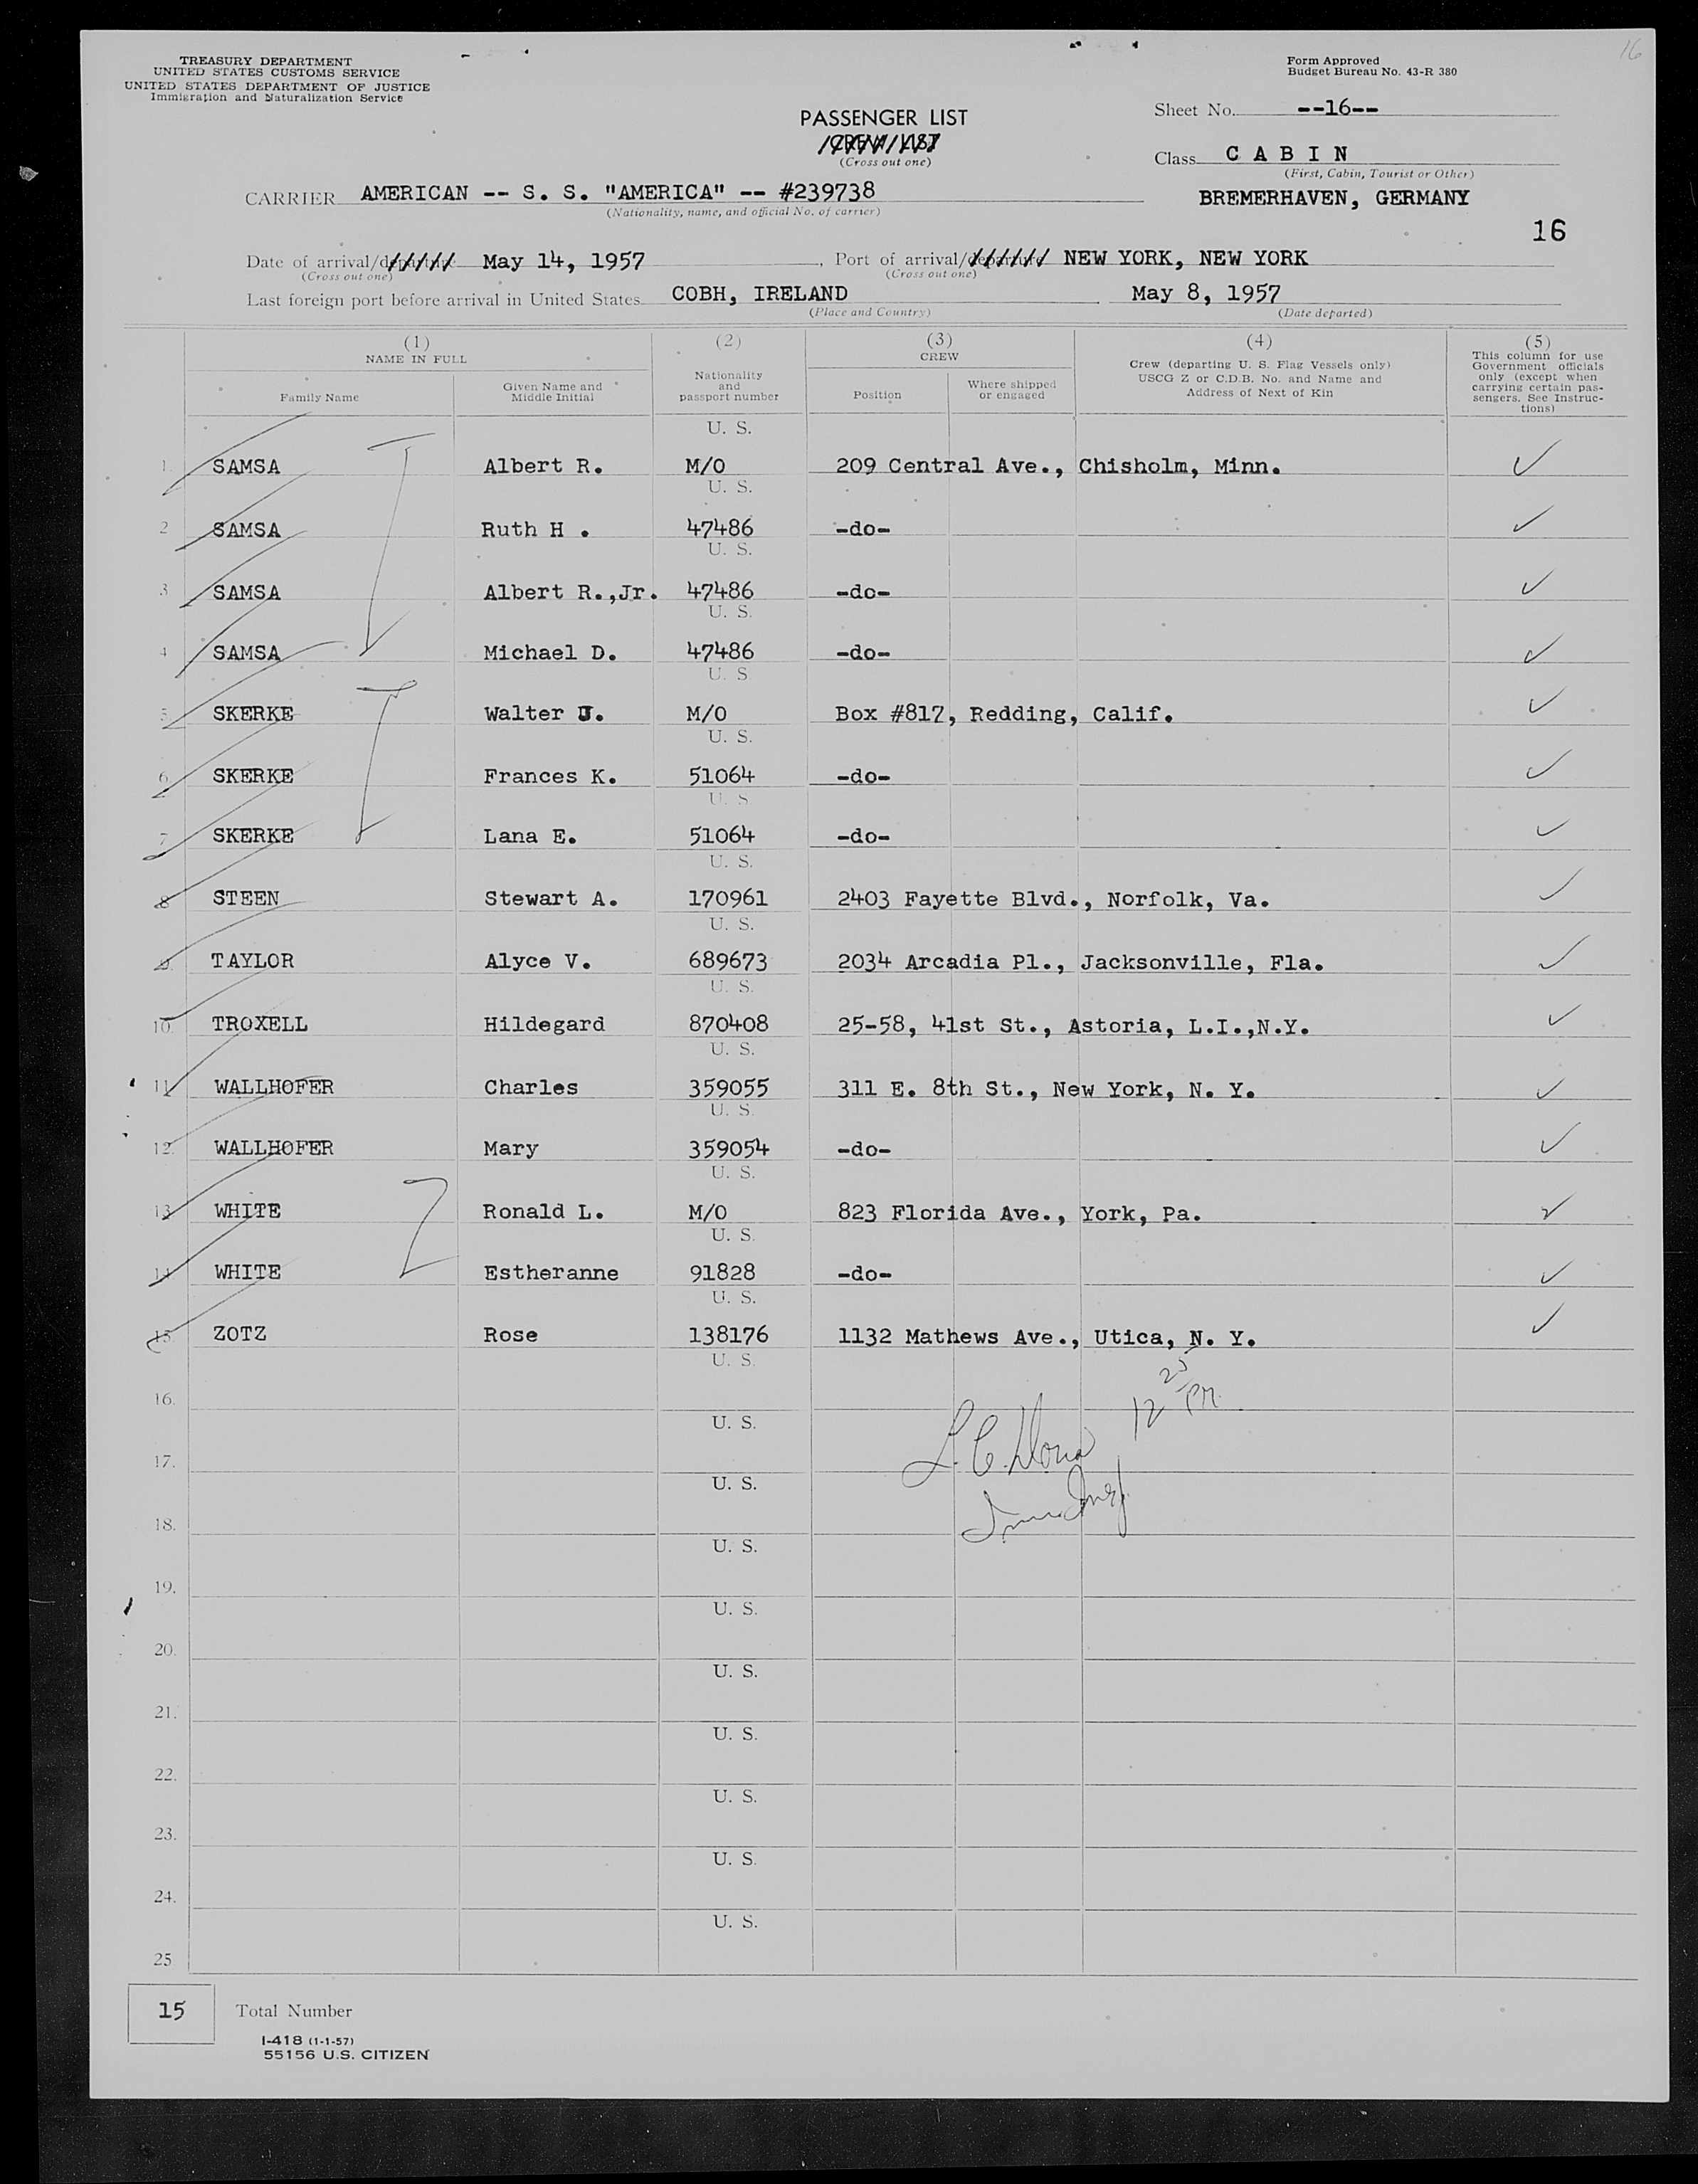 16
TREASURY DEPARTMENT
UNITED STATES CUSTOMS SERVICE
UNITED STATES DEPARTMENT OF JUSTICE
Immigration and Naturalization Service
Form Approved
Budget Bureau No. 43-R 380
PASSENGER LIST
CREW LIST
(Cross out one)
Sheet No. --16--
Class C A B I N
(First, Cabin, Tourist or Other)
CARRIER AMERICAN -- S. S. "AMERICA" -- #239738
(Nationality, name, and official No. of carrier)
BREMERHAVEN, GERMANY
16
Date of arrival/departure May 14, 1957, Port of arrival/departure NEW YORK, NEW YORK
(Cross out one) (Cross out one)
Last foreign port before arrival in United States COBH, IRELAND May 8, 1957
(Place and Country) (Date departed)
(1) (2) (3) (4) (5)
NAME IN FULL
Family Name
Given Name and Middle Initial
Nationality and passport number
CREW
Position
Where shipped or engaged
Crew (departing U. S. Flag Vessels only)
USCG Z or C.D.B. No. and Name and
Address of Next of Kin
This column for use
Government officials
only (except when
carrying certain pas-
sengers. See Instruc-
tions)
U. S.
1. SAMSA Albert R. M/O 209 Central Ave., Chisholm, Minn.
U. S.
2 SAMSA Ruth H . 47486 -do-
U. S.
3 SAMSA Albert R.,Jr. 47486 -do-
U. S.
4 SAMSA Michael D. 47486 -do-
U. S
5 SKERKE Walter J. M/O Box #817, Redding, Calif.
U. S.
6 SKERKE Frances K. 51064 -do-
U. S
7 SKERKE Lana E. 51064 -do-
U. S.
8 STEEN Stewart A. 170961 2403 Fayette Blvd., Norfolk, Va.
U. S.
9. TAYLOR Alyce V. 689673 2034 Arcadia Pl., Jacksonville, Fla.
U. S.
10. TROXELL Hildegard 870408 25-58, 41st St., Astoria, L.I.,N.Y.
U. S.
11 WALLHOFER Charles 359055 311 E. 8th St., New York, N. Y.
U. S.
12. WALLHOFER Mary 359054 -do-
U. S.
13 WHITE Ronald L. M/O 823 Florida Ave., York, Pa.
U. S.
14 WHITE Estheranne 91828 -do-
U. S.
15. ZOTZ Rose 138176 1132 Mathews Ave., Utica, N. Y.
U. S.
12 25 PM
16.
U. S.
17.
U. S.
18.
U. S.
19.
U. S.
20.
U. S.
21.
U. S.
22.
U. S.
23.
U. S.
24.
U. S.
25
15 Total Number
I-418 (1-1-57)
55156 U.S. CITIZEN